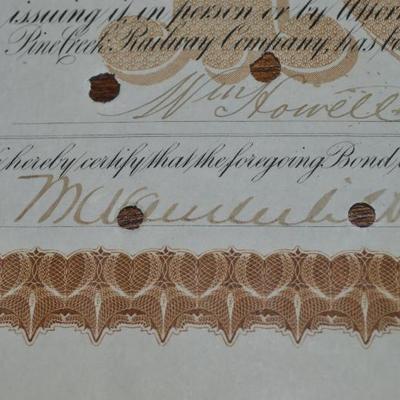 issuing it in person or by Attorn
Pine Creek Railway Company, has be
Wm Howell
hereby certify that the foregoing Bond,
Vanderbilt